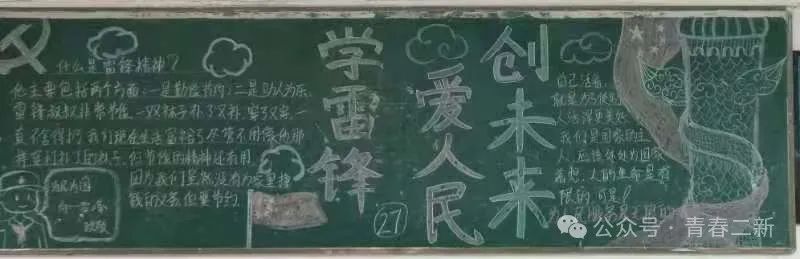 什么是雷锋精神?
他主要包括两个方面:一是勤俭节约,二是助人为乐,
雷锋叔叔非常节俭,一双袜子补了又补,穿了又穿,一
直不舍得扔,我们现在生活富裕了尽管不用像他那
节俭的精神还有用
因为我们虽然没有为家里挣
钱的义务但要节约
向雷锋
致敬
学雷锋
爱人民
创未来
27
自己活着,
就是为了使别
人活得更美好
我们是国家的主
人,应该处处为国家
着想,人的生命是有
限的,可是
公众号·青春二新